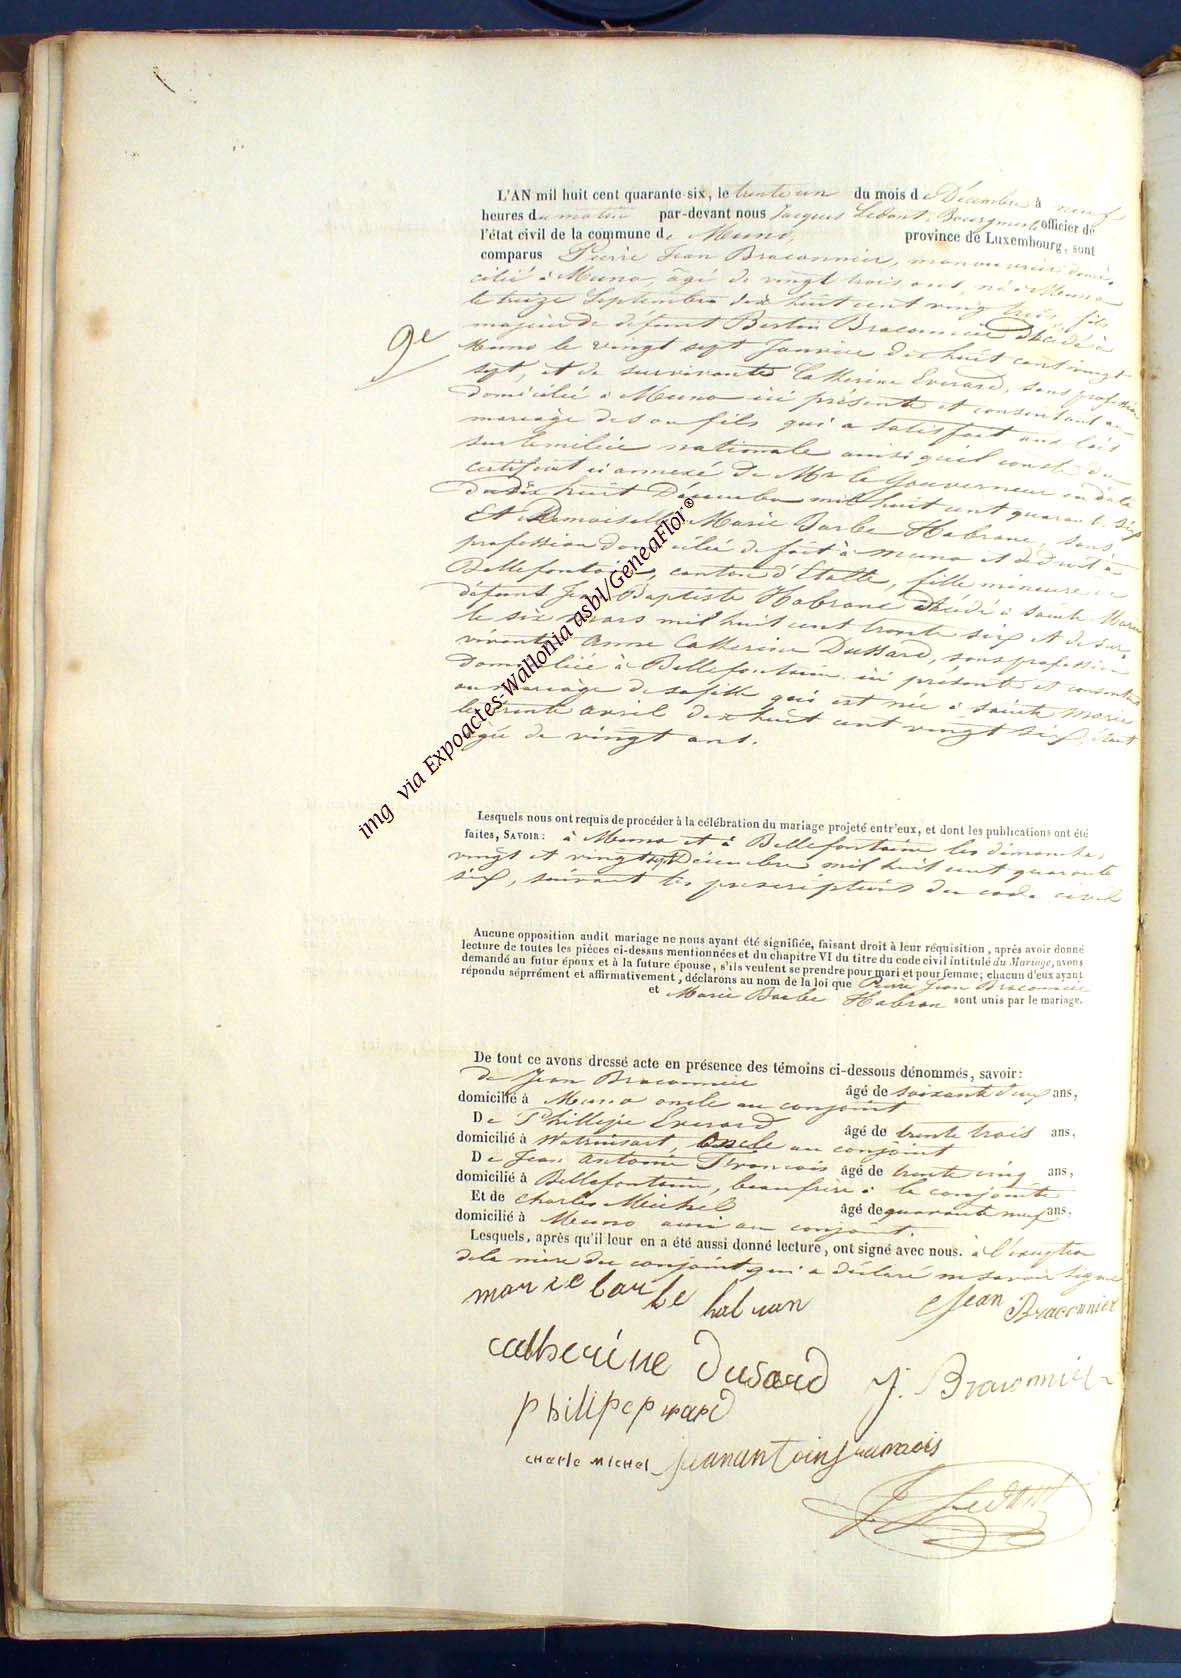 L'AN mil huit cent quarante-six, le trente un du mois de Décembre à neuf
heures du matin par-devant nous Jacques Ledant, Bourgmestre officier de
l'état civil de la commune de Muno, province de Luxembourg, sont
comparus Pierre Jean Braconnier, manouvrier domi-
cilié à Muno, âgé de vingt trois ans, né à Muno
le treize Septembre dix huit cent vingt trois, fils
majeur de défunt Bertin Braconnier décédé à
9e
Muno le vingt sept Janvier dix huit cent vingt
sept, et de survivante Catherine Everard, sans profession
domiciliée à Muno ici présente et consentant au
mariage de son fils qui a satisfait aux lois
sur la milice nationale ainsi qu'il conste du
certificat ci annexé de Mr le Gouverneur en date
du dix huit Décembre mil huit cent quarante six
Et Demoiselle Marie Barbe Habrane, sans
profession domiciliée de fait à Muno et de droit à
Bellefontaine, canton d'Etalle, fille mineure de
défunt Jean Baptiste Habrane décédé à Sainte Marie
le six Mars mil huit cent trente six et de sur-
vivante Anne Catherine Dussard, sans profession
domiciliée à Bellefontaine ici présente et consentant
au mariage de sa fille qui est née à Sainte Marie
le trente avril dix huit cent vingt six, étant
âgée de vingt ans.
img via Expoactes-Wallonia asbl/GeneaFlor®
Lesquels nous ont requis de procéder à la célébration du mariage projeté entr'eux, et dont les publications ont été
faites, SAVOIR: à Muno et à Bellefontaine les dimanches
vingt et vingt sept Décembre mil huit cent quarante
six, suivant les prescriptions du code civil
Aucune opposition audit mariage ne nous ayant été signifiée, faisant droit à leur réquisition, après avoir donné
lecture de toutes les pièces ci-dessus mentionnées et du chapitre VI du titre du code civil intitulé du Mariage, avons
demandé au futur époux et à la future épouse, s'ils veulent se prendre pour mari et pour femme; chacun d'eux ayant
répondu séprrément et affirmativement, déclarons au nom de la loi que Pierre Jean Braconnier
et Marie Barbe Habran sont unis par le mariage.
De tout ce avons dressé acte en présence des témoins ci-dessous dénommés, savoir:
de Jean Braconnier âgé de soixante deux ans,
domicilié à Muno oncle au conjoint
De Phillipe Everard âgé de trente trois ans,
domicilié à Watrinsart, oncle au conjoint
De Jean Antoine Francois âgé de trente cinq ans,
domicilié à Bellefontaine, beaufrère à la conjointe
Et de Charles Michel âgé de quarante neuf ans,
domicilié à Muno ami au conjoint.
Lesquels, après qu'il leur en a été aussi donné lecture, ont signé avec nous. à l'exception
de la mère du conjoint qui a déclaré ne savoir signer
marie barbe habran Jean Braconnier
catherine dusard J. Braconnier
philipe
charle michel jean antoin francois
J Ledant